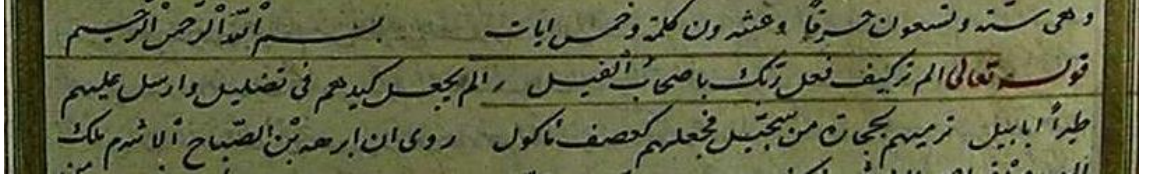 وهى ستة وتسعون حرفاً وعشرون كلمة وخمس ايات بسم الله الرحمن الرحيم
قوله تعالى الم تر كيف فعل ربك باصحاب الفيل الم يجعل كيدهم فى تضليل وارسل عليهم
طيراً ابابيل ترميهم بحجارة من سجّيل فجعلهم كعصف مأكول روى ان ابرهه بن الصّباح الاشرم ملك